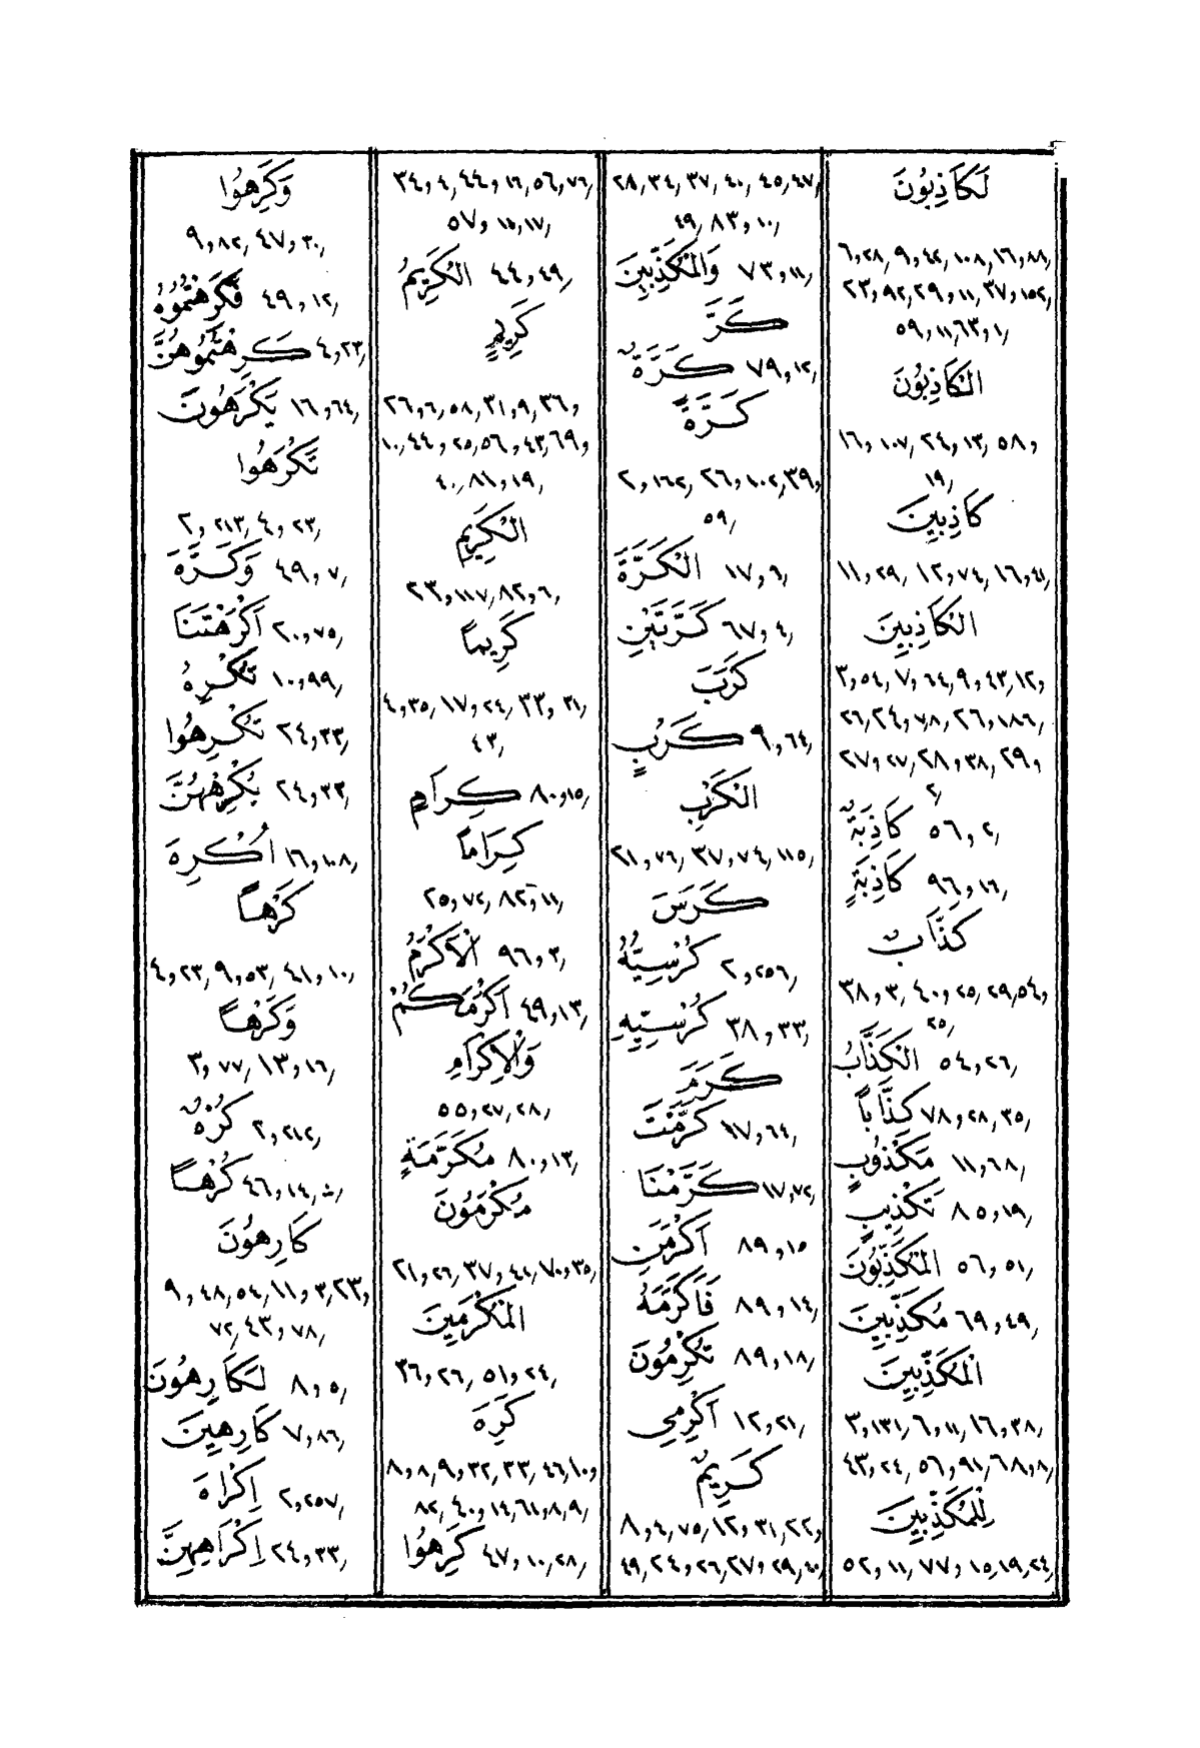 لَكَاذِبُونَ
٦,٢٨, ٩,٤٢, ١٠٨, ١٦,٨٦,
٢٣,٩٢, ٢٩, ١١, ٣٧,١٥٢,
٥٩, ١١, ٦٣,١,
الْكَاذِبُونَ
١٦, ١٠٧, ٢٤,١٣, ٥٨,
١٨,
كَاذِبِينَ
١١,٢٩, ١٢,٧٤, ١٦,٤١,
الْكَاذِبِينَ
٣,٥٤, ٧, ٦٤, ٩,٤٣, ١٢,
٢٦, ٢٤, ٧٨, ٢٦, ١٨٦,
٢٧, ٢٧, ٢٨, ٣٨, ٢٩,
٢,
كَاذِبَةٌ ٥٦,٢,
كَاذِبَةٍ ٩٦,١٦,
كَذَّابٌ
٣٨,٣, ٤٠,٢٥,٢٩,٥٤,
٢٥,
الْكَذَّابُ ٥٤,٢٦,
كِذَّاباً ٧٨,٢٨, ٣٥,
مَكْذُوبٍ ١١,٦٨,
تَكْذِيبٍ ٨٥,١٩,
الْمُكَذِّبُونَ ٥٦,٥١,
مُكَذِّبِينَ ٦٩,٤٩,
الْمُكَذِّبِينَ
٣,١٣١, ٦,١١, ١٦,٣٨,
٤٣,٢٤, ٥٦,٩١, ٦٨,٨,
لِلْمُكَذِّبِينَ
٥٢,١١, ٧٧, ١٥,١٩,٢٤,
٢٨,٣٤, ٣٧, ٤٠, ٤٥,٤٧,
٤٩, ٨٣,١٠,
وَالْمُكَذِّبِينَ ٧٣,١١,
كَرَّ
كَرَّةٌ ٧٩,١٢,
كَرَّةً
٢,١٦٢, ٢٦,١٠٢,٣٩,
٥٩,
الْكَرَّةَ ١٧,٦,
كَرَّتَيْنِ ٦٧,٤,
كَرَبَ
كَرْبٍ ٩,٦٤,
الْكَرْبِ
٢١,٧٦, ٣٧,٧٤, ١١٥,
كَرَسَ
كُرْسِيُّهُ ٢,٢٥٦,
كُرْسِيِّهِ ٣٨,٣٣,
كَرَمَ
كَرَّمْتَ ١٧,٦٤,
كَرَّمْنَا ١٧,٧٢,
أَكْرَمَنِ ٨٩,١٥
فَأَكْرَمَهُ ٨٩,١٤,
تُكْرِمُونَ ٨٩,١٨,
أَكْرِمِي ١٢,٢١,
كَرِيمٌ
٨,٤, ٧٥, ١٢,٣١, ٢٢,
٤٩, ٢٤,٢٦, ٢٧, ٢٩,٤٠,
٣٤,٤, ٤٤, ١٦,٥٦,٧٦,
٥٧, ١٥,١٧,
الْكَرِيمُ ٤٤,٤٩,
كَرِيمٍ
٢٦,٦,٥٨,٣١,٩,٣٦,
١٠, ٤٤, ٢٥,٥٦, ٤٣,٦٩,
٤٠, ٨١,١٩,
الْكَرِيمِ
٢٣,١١٧, ٨٢,٦,
كَرِيماً
٤,٣٥, ١٧,٢٤, ٣٣, ٣١,
٤٣,
كِرَامٍ ٨٠,١٥,
كِرَاماً
٢٥,٧٢, ٨٢,١١,
الْأَكْرَمُ ٩٦,٣,
أَكْرَمَكُمْ ٤٩,١٣,
وَالْإِكْرَامِ
٥٥,٢٧,٢٨,
مُكَرَّمَةٍ ٨٠,١٣,
مُكْرَمُونَ
٢١,٢٦, ٣٧,٤١,٧٠,٣٥,
الْمُكْرَمِينَ
٣٦,٢٦, ٥١,٢٤,
كَرِهَ
٨,٨, ٩,٣٢, ٣٣, ٤٦, ١٠,
٨٢, ٤٠, ١٤, ٦١,٨, ٩,
كَرِهُوا ٤٧,١٠,٢٨,
وَكَرِهُوا
٩,٨٢, ٤٧,٣٠,
فَكَرِهْتُمُوهُ ٤٩,١٢,
كَرِهْتُمُوهُنَّ ٤,٢٣,
يَكْرَهُونَ ١٦,٦٤,
تَكْرَهُوا
٢,٢١٣,٤,٢٣,
وَكَرَّهَ ٤٩,٧,
أَكْرَهْتَنَا ٢٠,٧٥,
تُكْرِهُ ١٠,٩٩,
تُكْرِهُوا ٢٤,٣٣,
يُكْرِهْهُنَّ ٢٤,٣٣,
أُكْرِهَ ١٦,١٠٨,
كَرْهاً
٤,٢٣, ٩,٥٣, ٤١,١٠,
وَكَرْهاً
٣,٧٧, ١٣,١٦,
كُرْهٌ ٢,٢١٢,
كُرْهاً ٤٦,١٤,
كَارِهُونَ
٩,٤٨,٥٤, ١١, ٣, ٢٣,
٧٢, ٤٣,٧٨,
لَكَارِهُونَ ٨,٥,
كَارِهِينَ ٧,٨٦,
إِكْرَاهَ ٢,٢٥٧,
إِكْرَاهِهِنَّ ٢٤,٣٣,